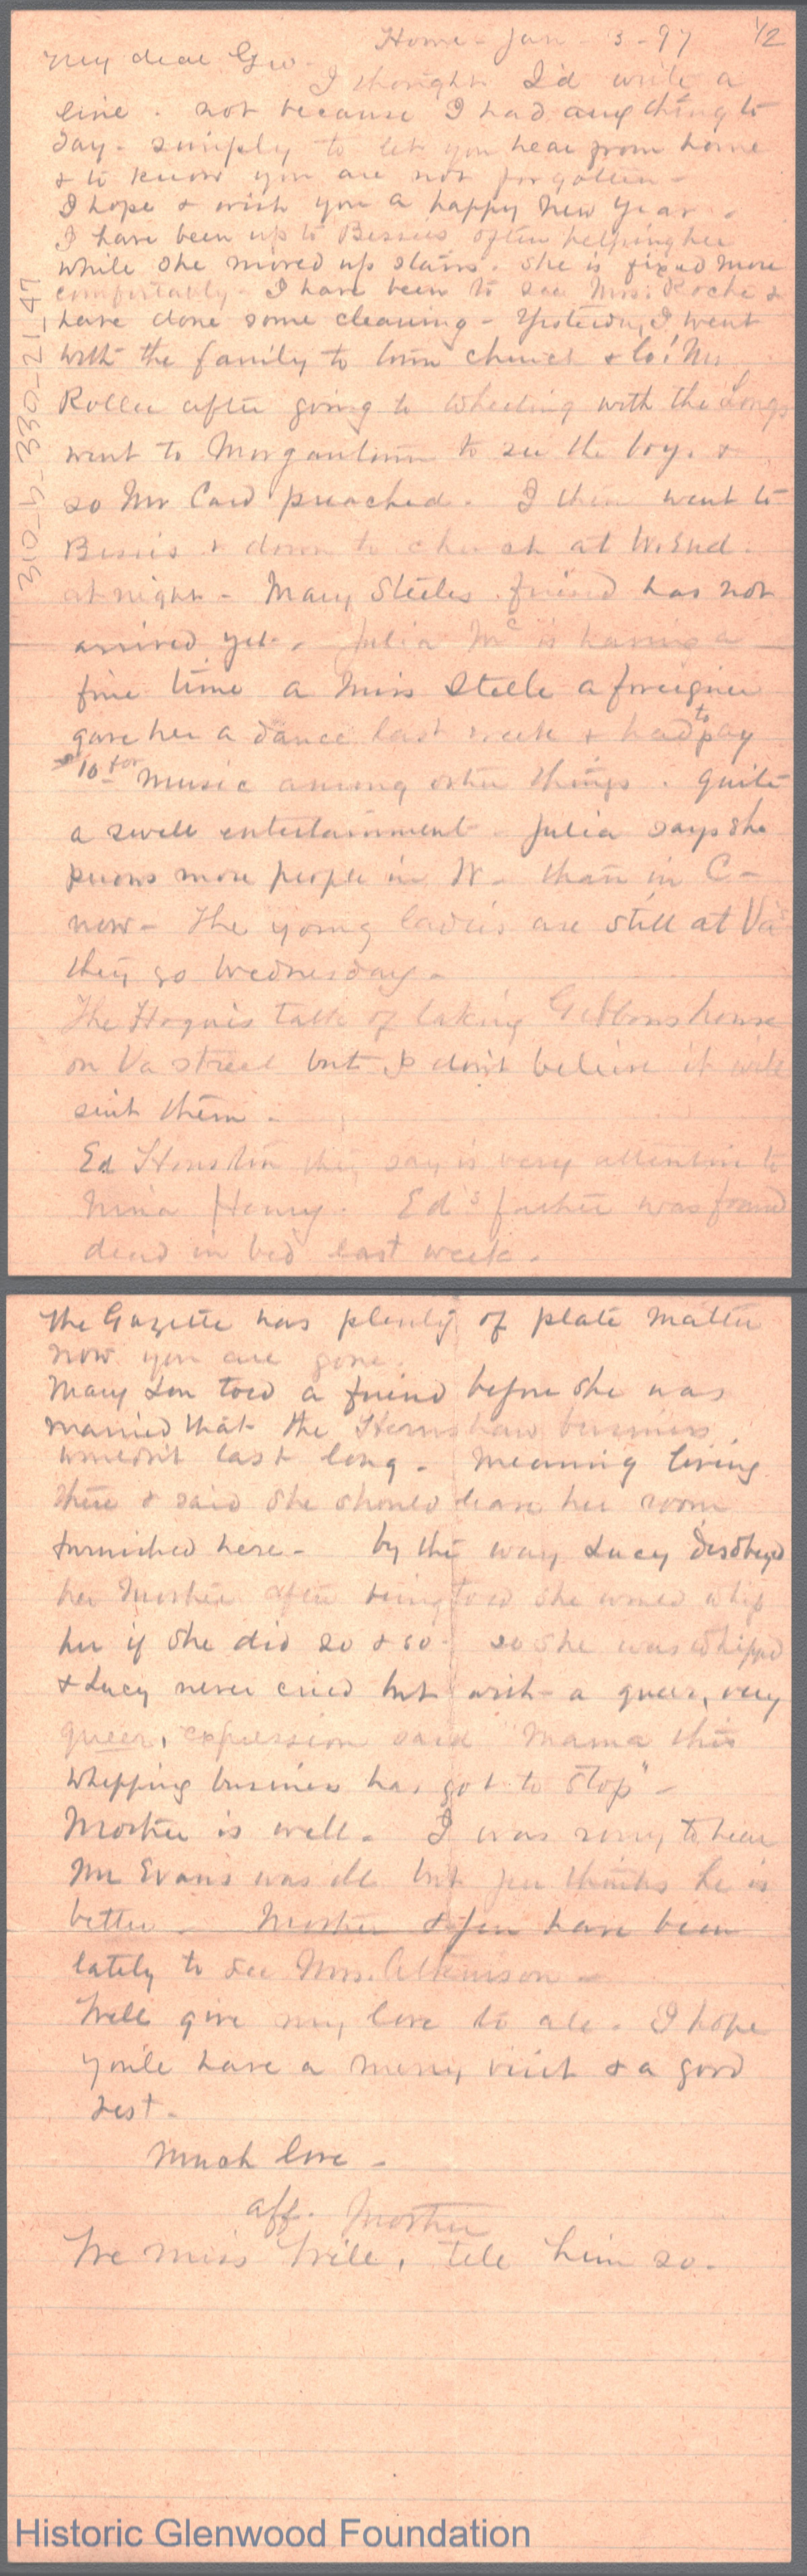 Home - Jan - 3 - 97 1/2
My dear Geo.
I thought I'd write a
line - not because I had any thing to
say - simply to let you hear from home
& to know you are not forgotten -
I hope & wish you a happy New Year -
I have been up to Bessies often helping her
while she moved up stairs. She is fixed more
comfortably - I have been to see Mrs. Roche &
have done some cleaning - Yesterday, I went
with the family to town church & lo! Mr
Roller after going to Wheeling with the Longs
went to Morgantown to see the boys &
so Mr Card preached. I then went to
Bessies & down to church at W. End.
at night - Mary Steeles friend has not
arrived yet - Julia Mc is having a
fine time a Miss Steele a foreigner
gave her a dance last week & had to pay
$10 for music among other things. quite
a swell entertainment - Julia says she
knows more people in W - than in C -
now - The young ladies are still at Va
they go Wednesday -
The Hogues talk of taking Gibbons house
on Va street but I don't believe it will
suit them -
Ed Houston they say is very attentive to
Nina Henry. Ed's father was found
dead in bed last week.
310-b-330-21-47
The Gazette has plenty of plate matter
now you are gone.
Mary Lou told a friend before she was
married that the business
wouldn't last long - meaning living
there & said she should leave her room
furnished here - by the way Lucy disobeyed
her Mother after being told she would whip
her if she did so & so - so she was whipped
& Lucy never cried but with a queer, very
queer, expression said "Mama this
whipping business has got to stop" -
Mother is well - I was sorry to hear
Mr Evans was ill but Jen thinks he is
better - Mother & Jen have been
lately to see Mrs. Atkinson -
Well give my love to all - I hope
you'll have a merry visit & a good
rest -
Much love -
aff. Mother
We miss Will, tell him so.
Historic Glenwood Foundation